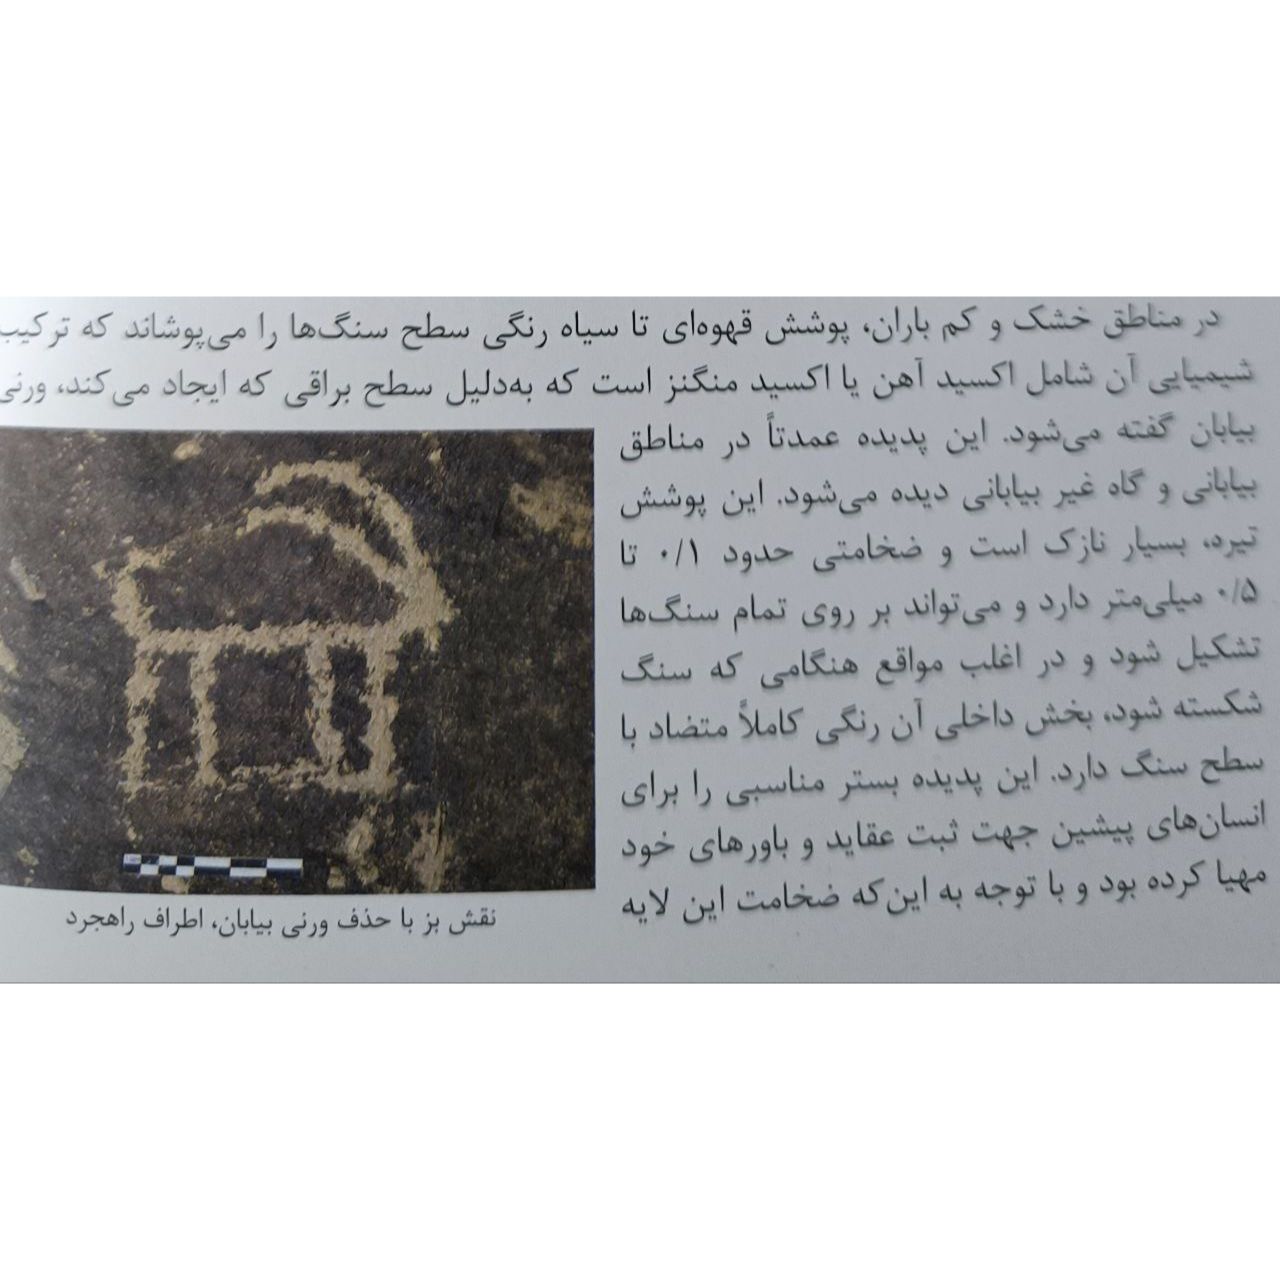 در مناطق خشک و کم باران، پوشش قهوه‌ای تا سیاه رنگی سطح سنگ‌ها را می‌پوشاند که ترکیب
شیمیایی آن شامل اکسید آهن یا اکسید منگنز است که به‌دلیل سطح براقی که ایجاد می‌کند، ورنی
بیابان گفته می‌شود. این پدیده عمدتاً در مناطق
بیابانی و گاه غیر بیابانی دیده می‌شود. این پوشش
تیره، بسیار نازک است و ضخامتی حدود ۰/۱ تا
۰/۵ میلی‌متر دارد و می‌تواند بر روی تمام سنگ‌ها
تشکیل شود و در اغلب مواقع هنگامی که سنگ
شکسته شود، بخش داخلی آن رنگی کاملاً متضاد با
سطح سنگ دارد. این پدیده بستر مناسبی را برای
انسان‌های پیشین جهت ثبت عقاید و باورهای خود
مهیا کرده بود و با توجه به این‌که ضخامت این لایه
نقش بز با حذف ورنی بیابان، اطراف راهجرد